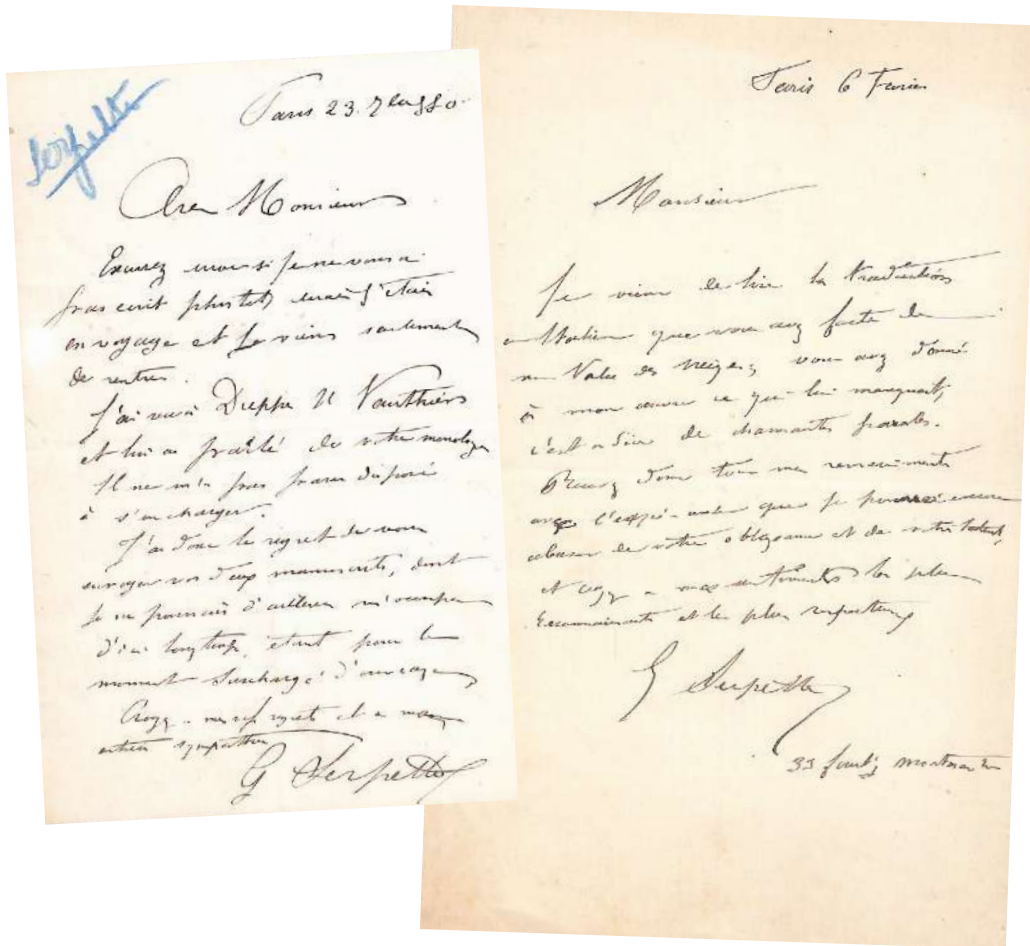 Serpette
Paris 23. 7bre 80
Cher Monsieur
Excusez moi si je ne vous ai
pas écrit plus tôt, mais j'étais
en voyage et je viens seulement
de rentrer.
J'ai vu à Dieppe M Vauthier
et lui ai parlé de votre monologue
Il ne m'a pas paru disposé
à s'en charger.
J'ai donc le regret de vous
envoyer vos deux manuscrits, dont
je ne pourrais d'ailleurs m'occuper
d'ici longtemps, étant pour le
moment surchargé d'ouvrage
Croyez à mes regrets et à mon
entière sympathie
G Serpette
Paris 6 Février
Monsieur
Je viens de lire la traduction
en Italien que vous avez faite de
ma Valse des neiges, vous avez donné
à mon œuvre ce qui lui manquait,
c'est à dire de charmantes paroles.
Recevez donc tous mes remerciements
avec l'espérance que je pourrai encore
abuser de votre obligeance et de votre talent,
et croyez à mes sentiments les plus
reconnaissants et les plus respectueux
G Serpette
33 faubg montmartre